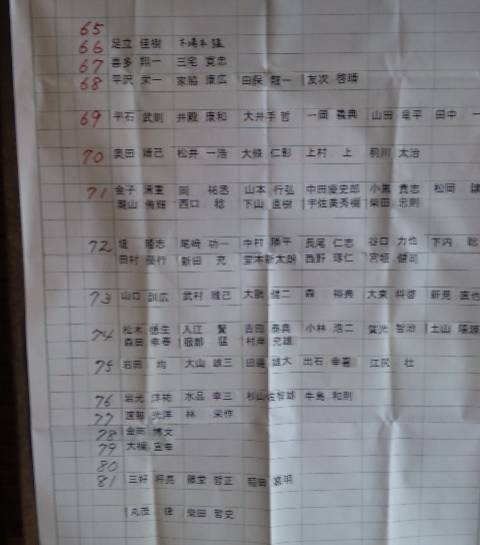 65
66 足立 佳樹
67 喜多 翔一 三宅 寛忠
68 平沢 栄一 家脇 康広 田保 龍一 友次 啓晴
69 平石 武則 井殿 康和 大井手 哲 一岡 義典 山田 田中
70 奥田 靖己 松井 一浩 大條 仁彰 上村 上 前川 太治
71 金子 岡 祐丞 山本 行弘 中田慶史郎 小黒 貴志 松岡
西口 稔 下山 直樹 宇佐美秀樹 柴田 忠則
72 堀 隆志 尾崎 功一 中村 陽平 長尾 仁志 谷口 力也 下内 聡
田村 優行 新田 充 宮本新太朗 西野 琢仁 宮垣 健司
73 山口 訓広 武村 雅己 大鵬 健二 森 裕典 大東 新見 直也
74 松木 入江 賢 吉田 泰典 小林 浩二 賀光 智治 土山
森田 幸春 服部 猛 村岸 克雄
75 岩田 均 大山 雄三 雄大 出石 幸喜 江尻 壮
76 岩元 洋祐 水品 幸三 杉山佐智雄 牛島 和則
77 光洋 林 栄作
78 金高 博文
79 大槻
80
81 三好 将亮 藤堂 哲正 稲田 嘉明
丸茂 律 柴田 哲史